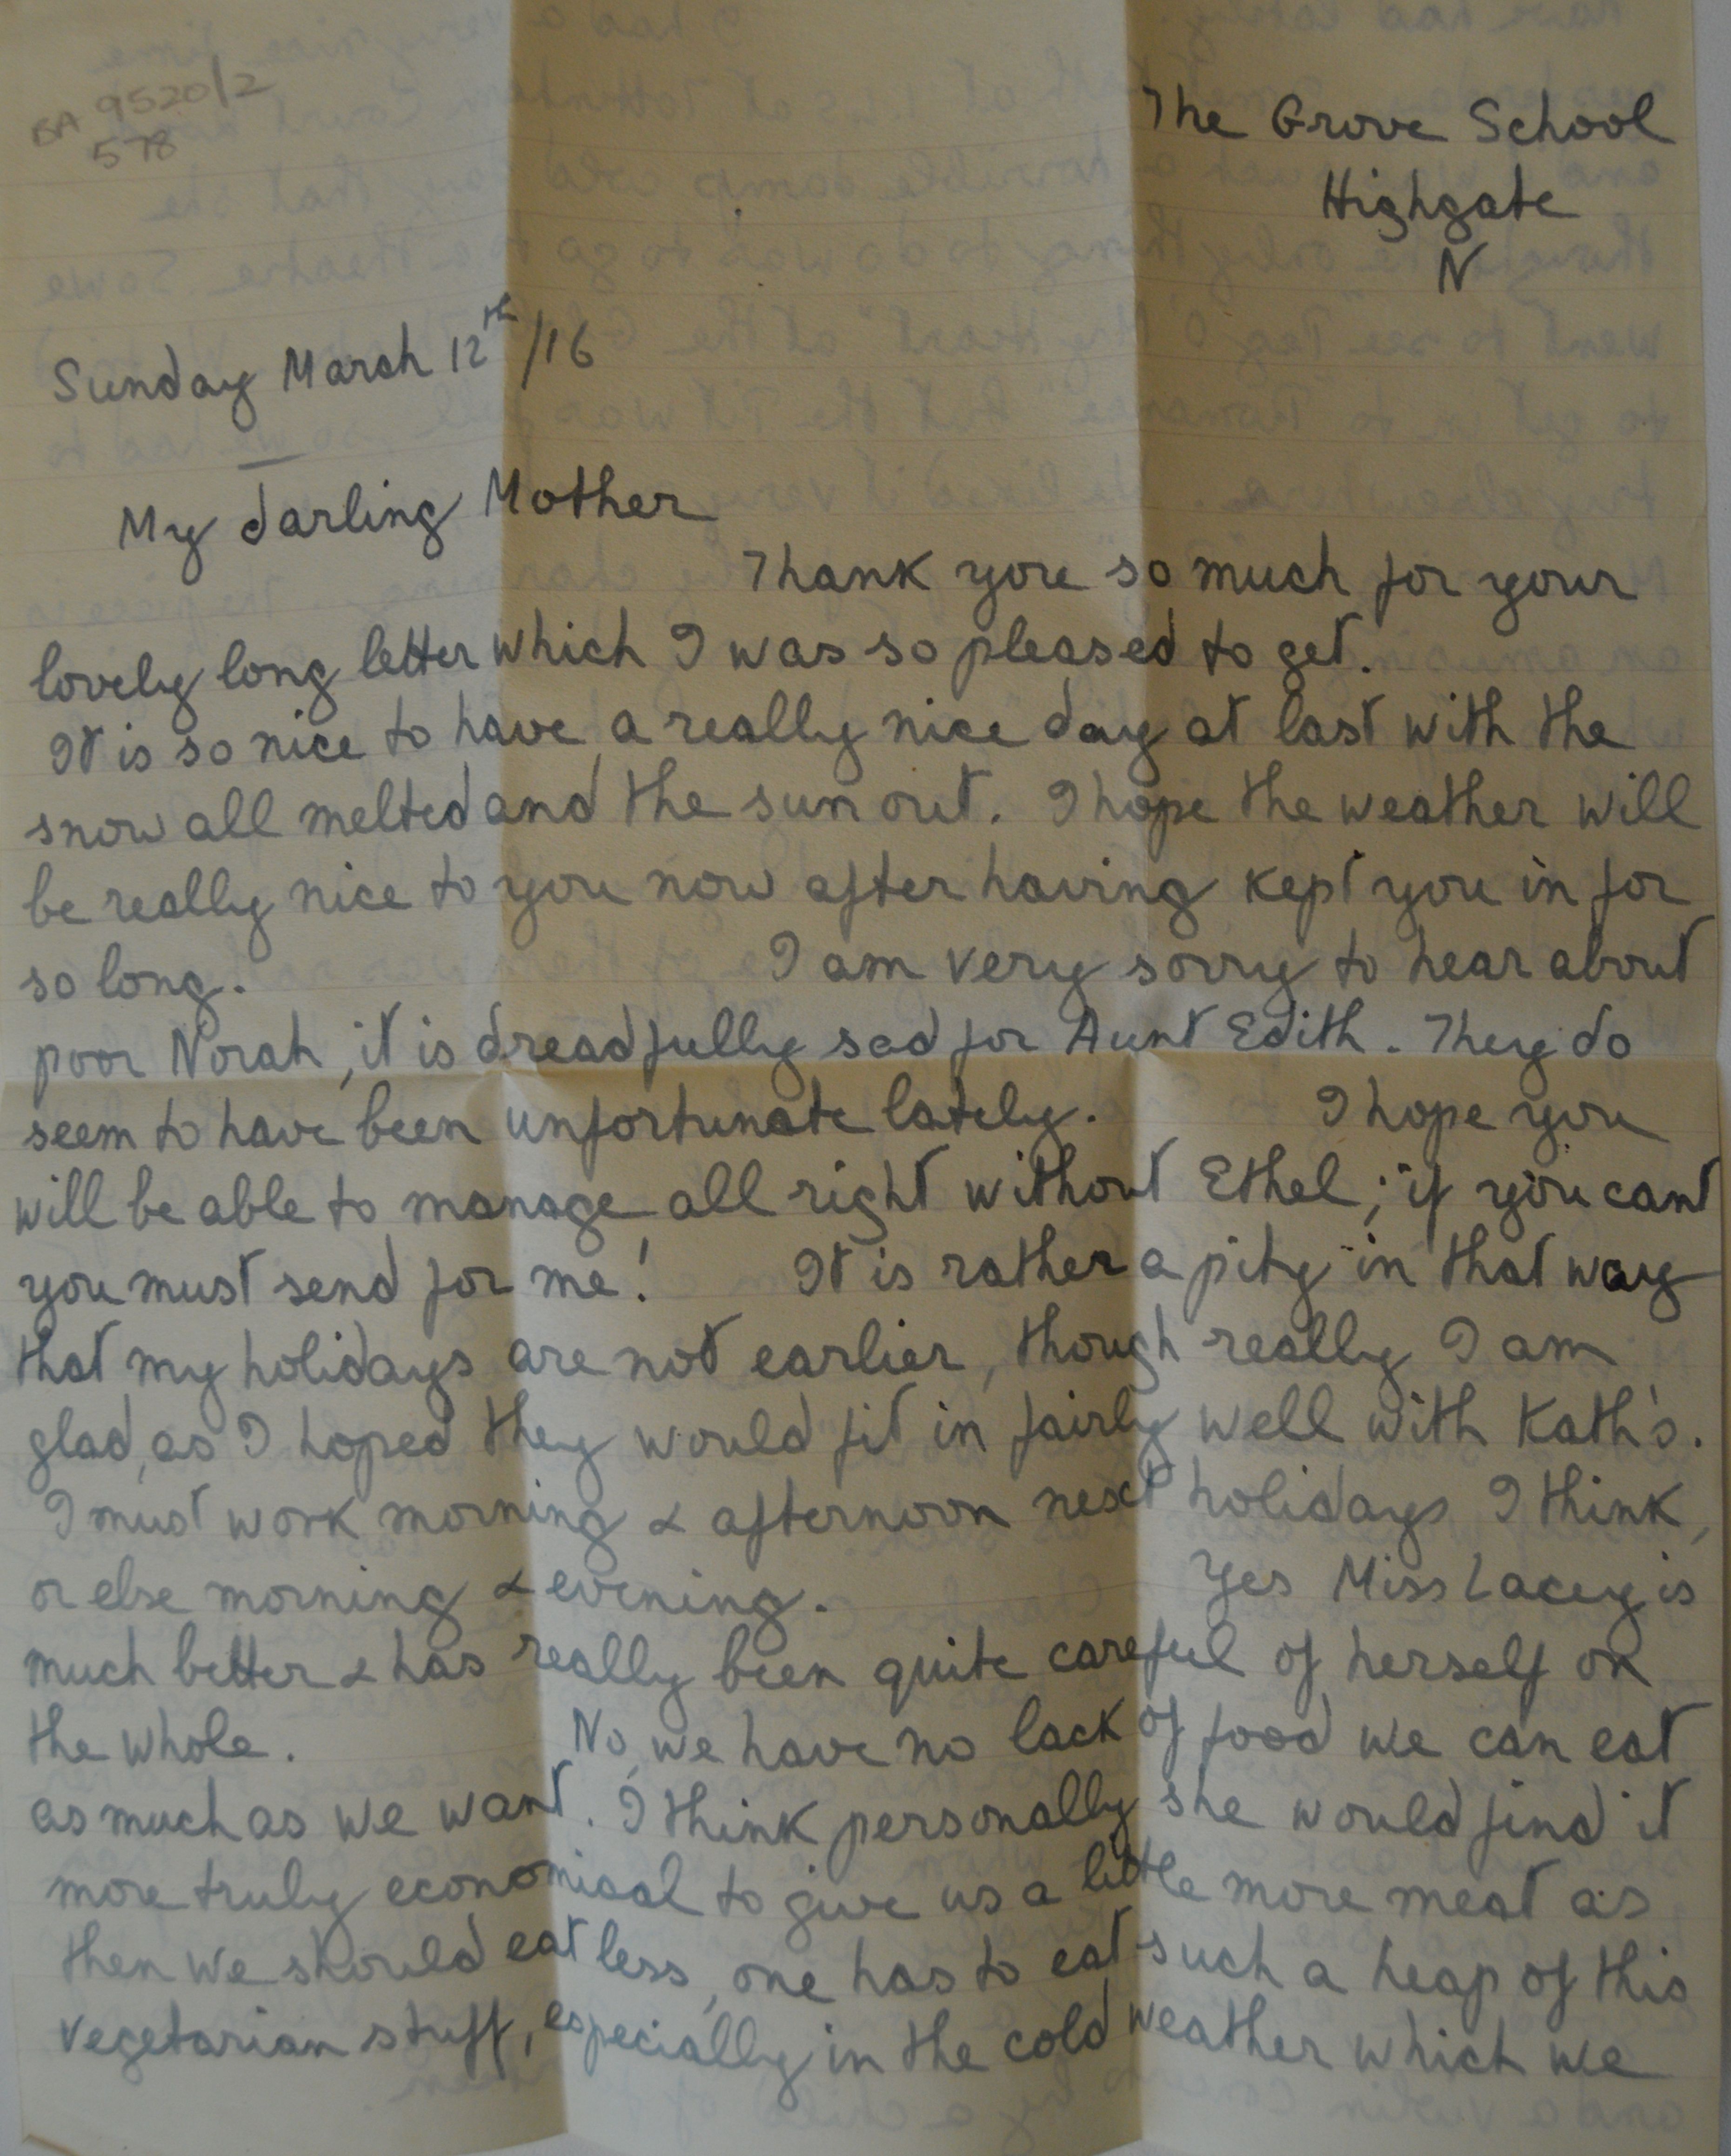 BA 9520/2
578
The Grove School
Highgate
N
Sunday March 12th/16
My darling Mother
Thank you so much for your
lovely long letter which I was so pleased to get.
It is so nice to have a really nice day at last with the
snow all melted and the sun out. I hope the weather will
be really nice to you now after having kept you in for
so long. I am very sorry to hear about
poor Norah, it is dreadfully sad for Aunt Edith. They do
seem to have been unfortunate lately. I hope you
will be able to manage all right without Ethel; if you cant
you must send for me! It is rather a pity in that way
that my holidays are not earlier, though really I am
glad, as I hoped they would fit in fairly well with Kath's.
I must work morning & afternoon next holidays I think,
or else morning & evening. Yes Miss Lacey is
much better & has really been quite careful of herself on
the whole. No, we have no lack of food we can eat
as much as we want. I think personally she would find it
more truly economical to give us a little more meat as
then we should eat less, one has to eat such a heap of this
vegetarian stuff, especially in the cold weather which we